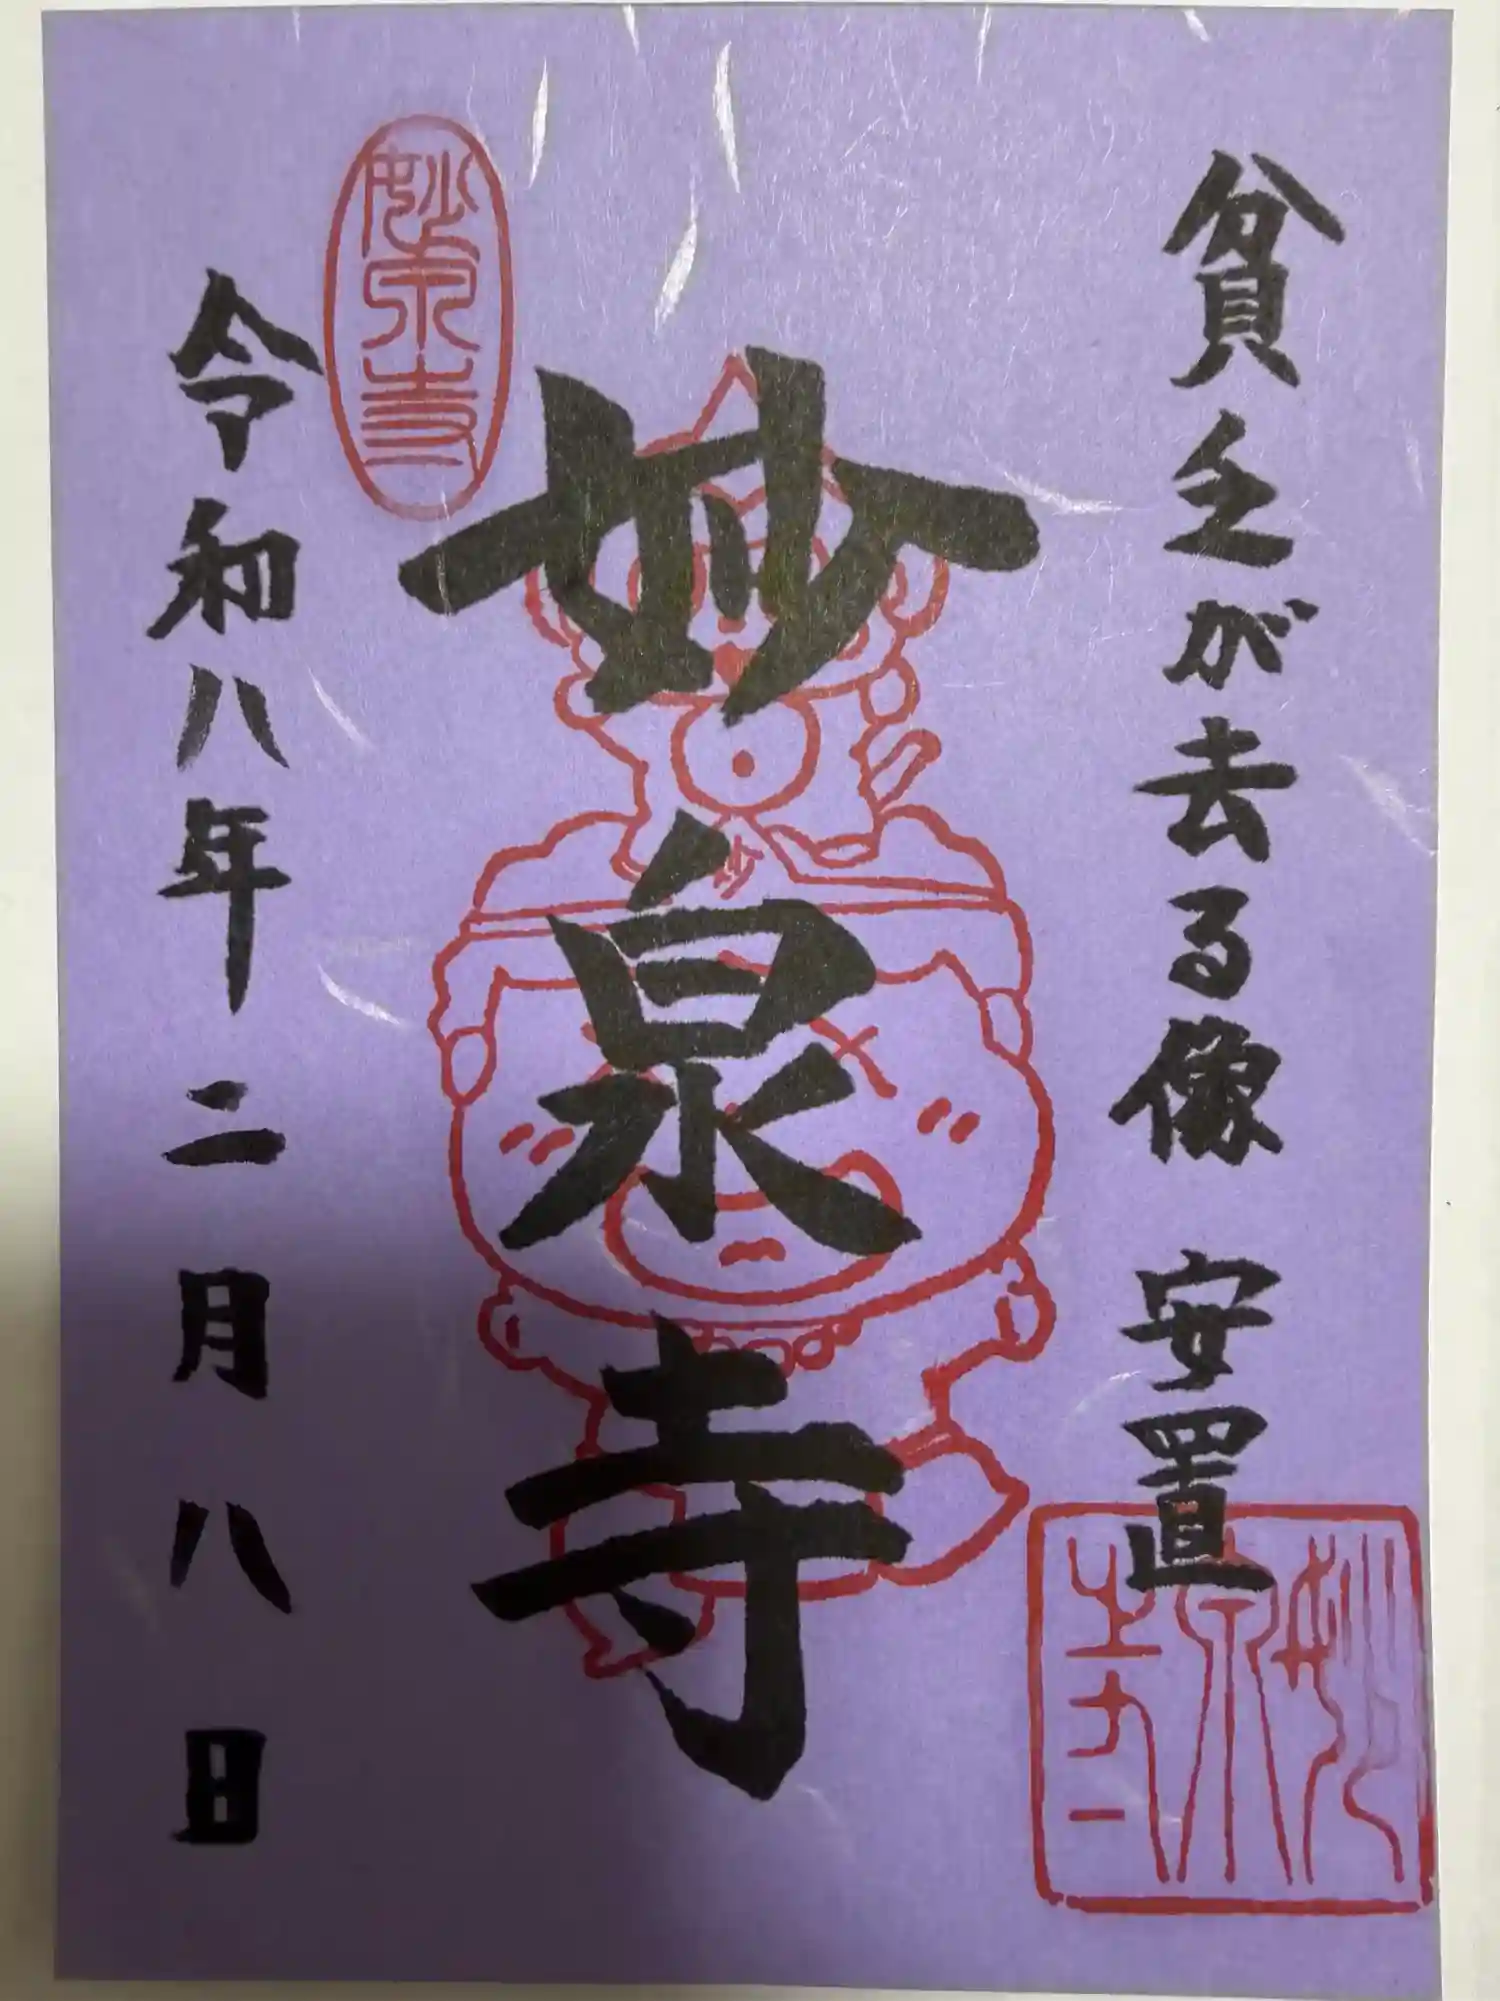 貧乏が去る像 安置
妙泉寺
妙泉寺
妙
妙泉寺
令和八年二月八日